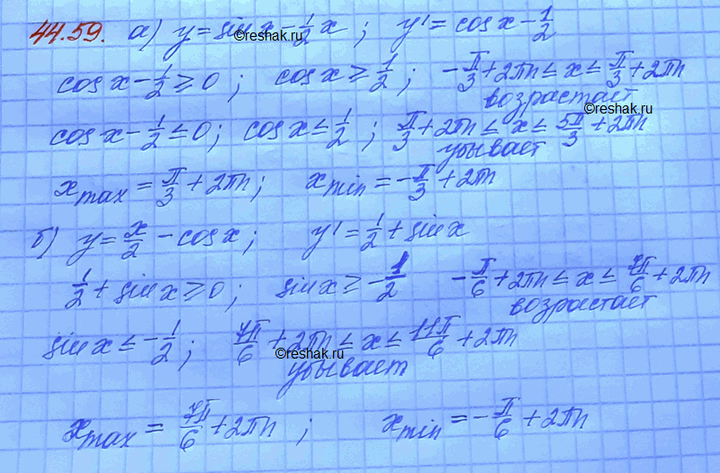 44.59. а) y = sin x - 1/2 x ; y' = cos x - 1/2
©reshak.ru
cos x - 1/2 ≥ 0 ; cos x ≥ 1/2 ; -π/3 + 2πn ≤ x ≤ π/3 + 2πn
возрастает
©reshak.ru
cos x - 1/2 ≤ 0 ; cos x ≤ 1/2 ; π/3 + 2πn ≤ x ≤ 5π/3 + 2πn
убывает
x max = π/3 + 2πn ; x min = -π/3 + 2πn
б) y = x/2 - cos x ; y' = 1/2 + sin x
1/2 + sin x ≥ 0 ; sin x ≥ -1/2 -π/6 + 2πn ≤ x ≤ 7π/6 + 2πn
возрастает
sin x ≤ -1/2 ; 7π/6 + 2πn ≤ x ≤ 11π/6 + 2πn
©reshak.ru
убывает
x max = 7π/6 + 2πn ; x min = -π/6 + 2πn